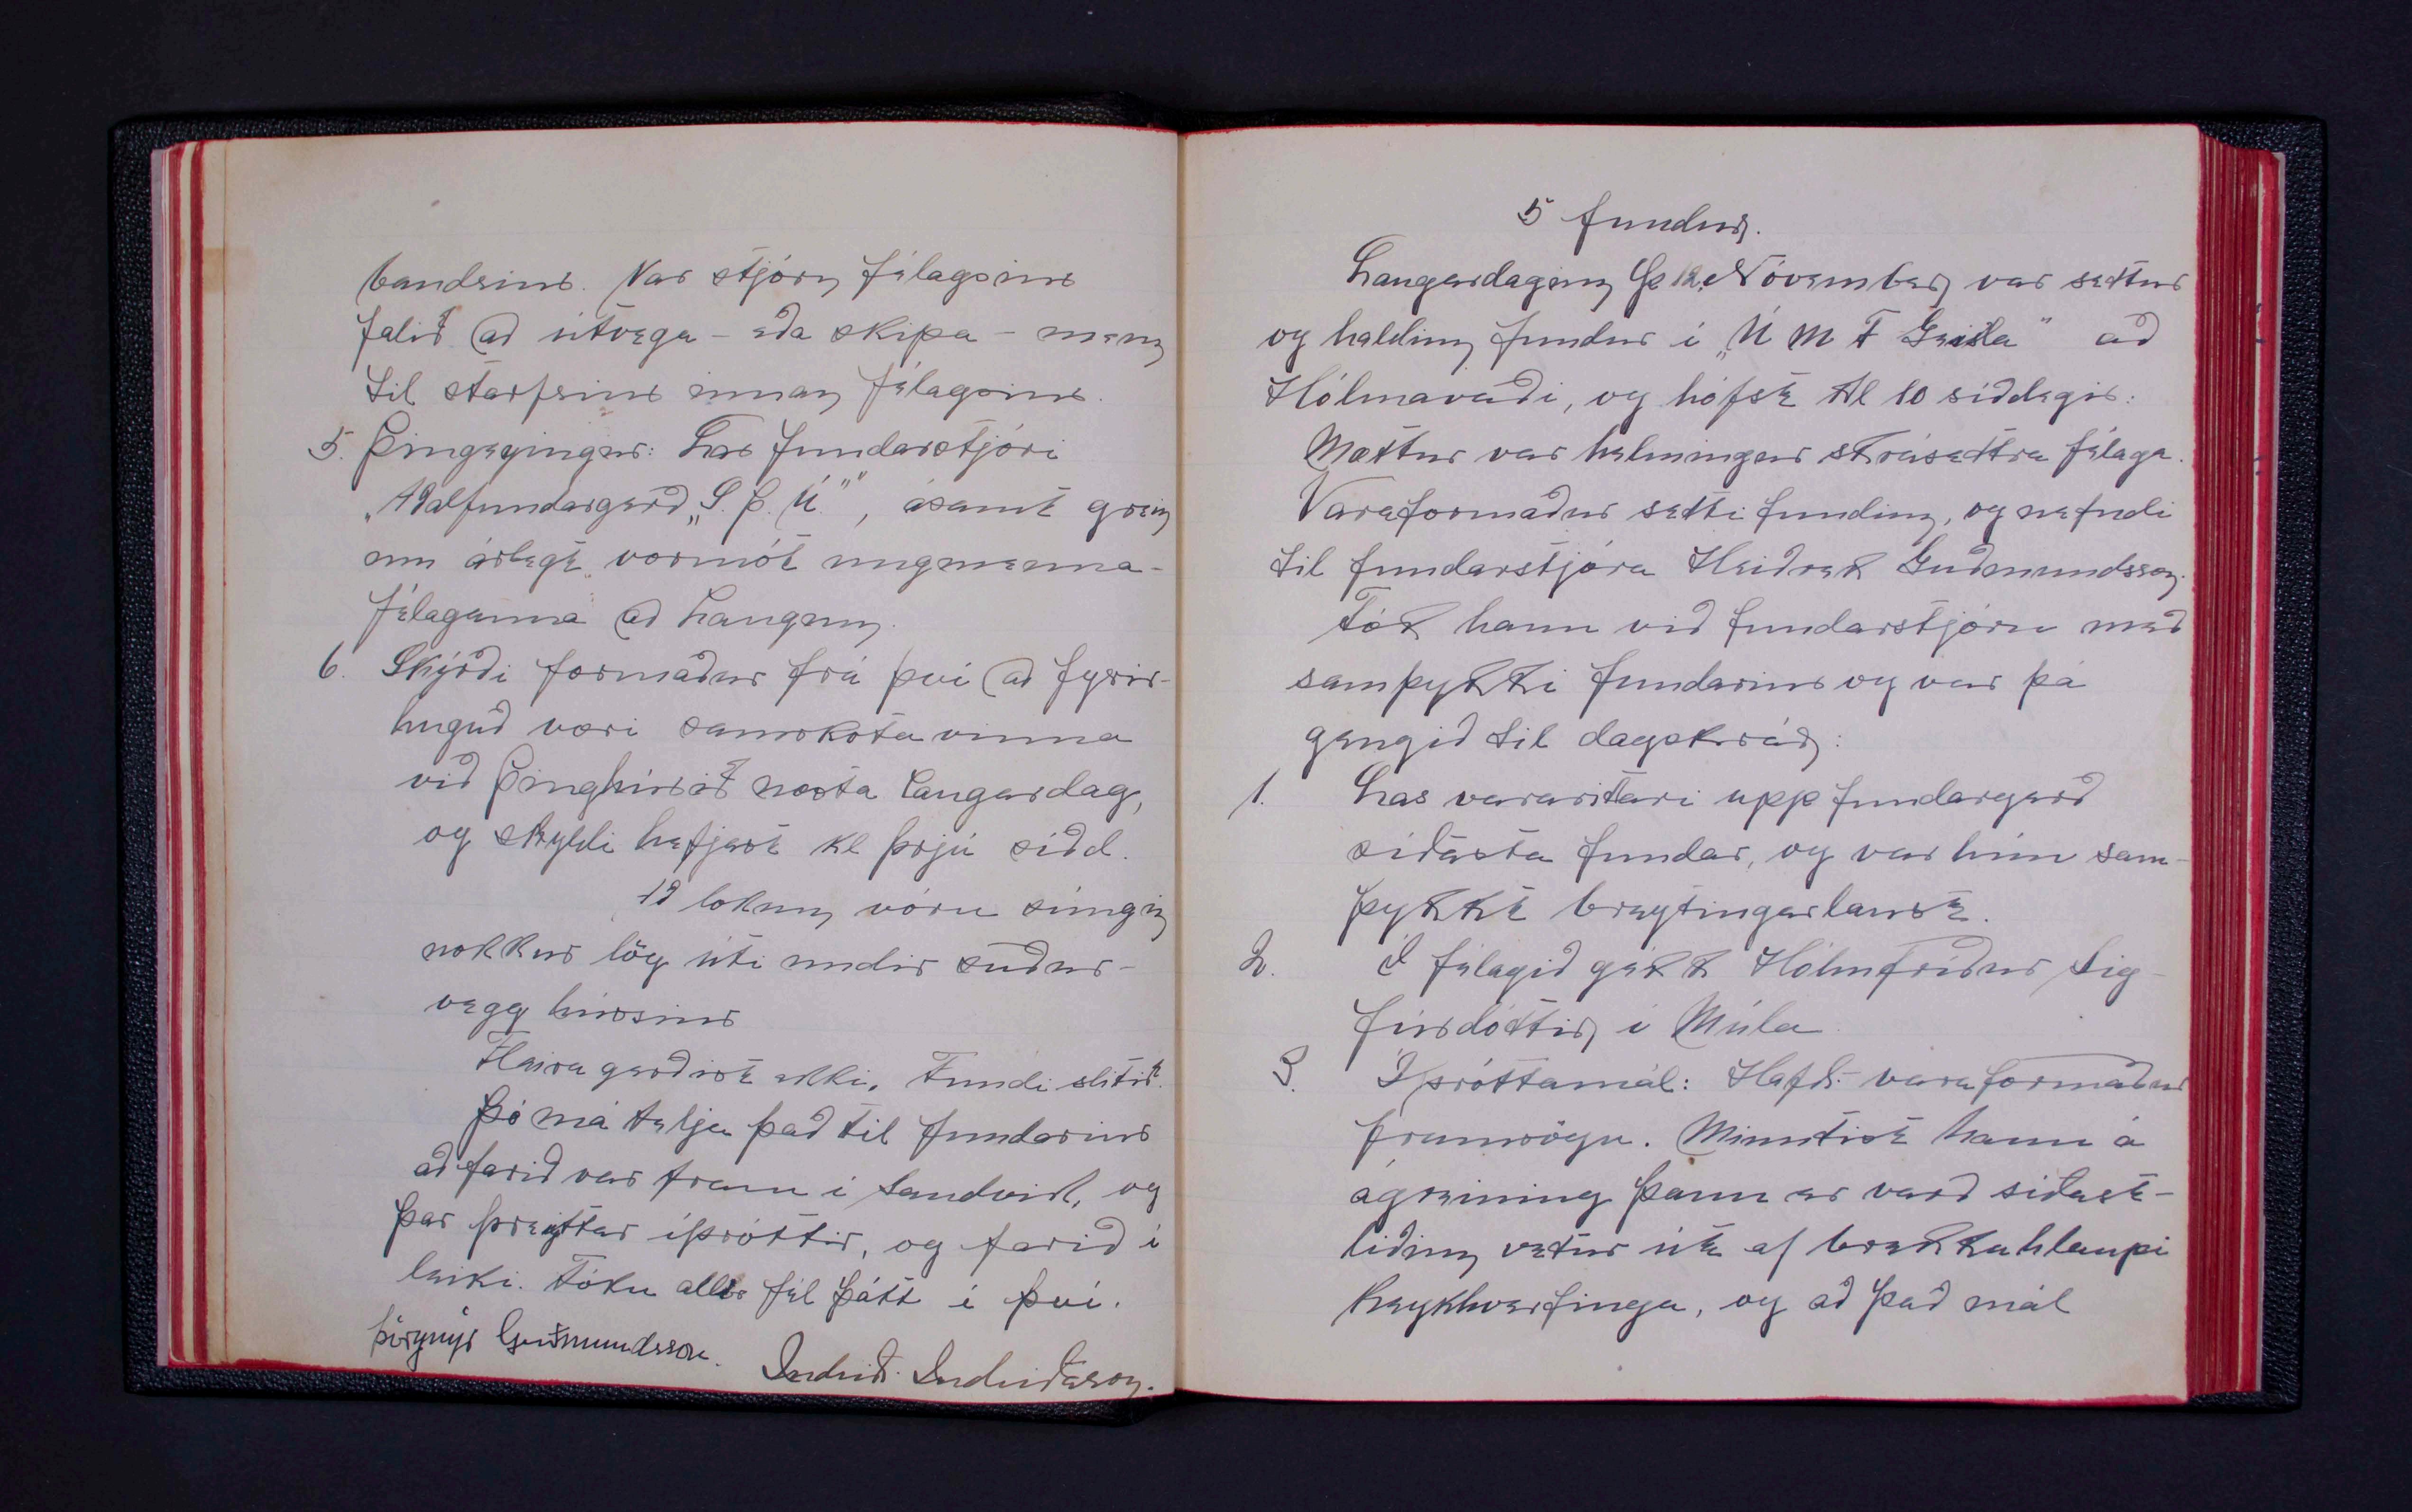 bandsins. Var stjórn félagsins
falið að útvega - eða skipa - menn
til starfsins innan félagsins.
5. Þingeyingur: Las fundarstjóri
„Aðalfundargerð „S. Þ. U."", ásamt grein
um árlegt vormót ungmenna-
félaganna að Laugum.
6. Skýrði formaður frá því að fyrir-
huguð væri samskotavinna
við Þinghúsið næsta laugardag,
og skyldi hefjast kl þrjú síðd.
Að lokum vóru súngin
nokkur lög úti undir suður-
vegg hússins
Fleira gerðist ekki. Fundi slitið.
Þó má telja það til fundarins
að farið var fram í Sandvík, og
þar þreyttar íþróttir, og farið í
leiki. Tóku allir fél þátt í því.
Þórgnýr Guðmundsson.
Indriði Indriðason.
5 fundur.
Laugardaginn 12. Nóvember var settur
og haldinn fundur í „U M F Geisla" að
Hólmavaði, og hófst kl 10 síðdegis:
Mættur var helmingur skrásettra félaga.
Varaformaður setti fundinn, og nefndi
til fundarstjóra Heiðrek Guðmundsson.
Tók hann við fundarstjórn með
samþykki fundarins og var þá
gengið til dagskrár:
1. Las vararitari upp fundargerð
síðasta fundar, og var hún sam-
þykkt breytingarlaust.
2. Í félagið gekk Hólmfríður Sig-
fúsdóttir í Múla.
3. Íþróttamál: Hafði varaformaður
framsögu. Minntist hann á
ágreining þann er varð síðast-
liðinn vetur út af brekkuhlaupi
Reykhverfinga, og að það mál